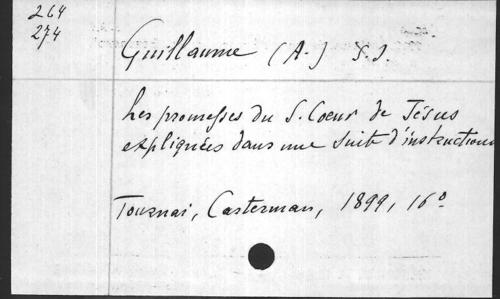 264
274
Guillaume (A.) S.J.
Les promesses du S. Coeur de Jésus
expliquées dans une suite d'instructions
Tournai, Casterman, 1899, 16°